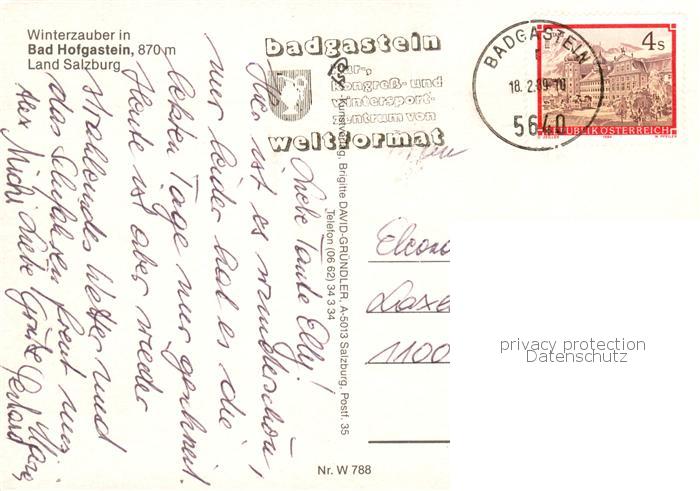 Winterzauber in
Bad Hofgastein, 870 m
Land Salzburg
badgastein
kur-,
kongreß- und
wintersport-
zentrum von
weltformat
BADGASTEIN
18.2.89-10
5640
4s
REPUBLIK ÖSTERREICH
Liebe Tante Elly!
Hier ist es wunderschön,
nur leider hat es die
letzten Tage nur geschneit.
Heute ist aber wieder
strahlendes Wetter und
das Schifahren freut uns.
Liebe Grüße Gerhard
Alex Michi
Kunstverlag, Brigitte DAVID-GRÜNDLER, A-5013 Salzburg, Postf. 35
Telefon (06 62) 34 3 34
1100
privacy protection
Datenschutz
Nr. W 788